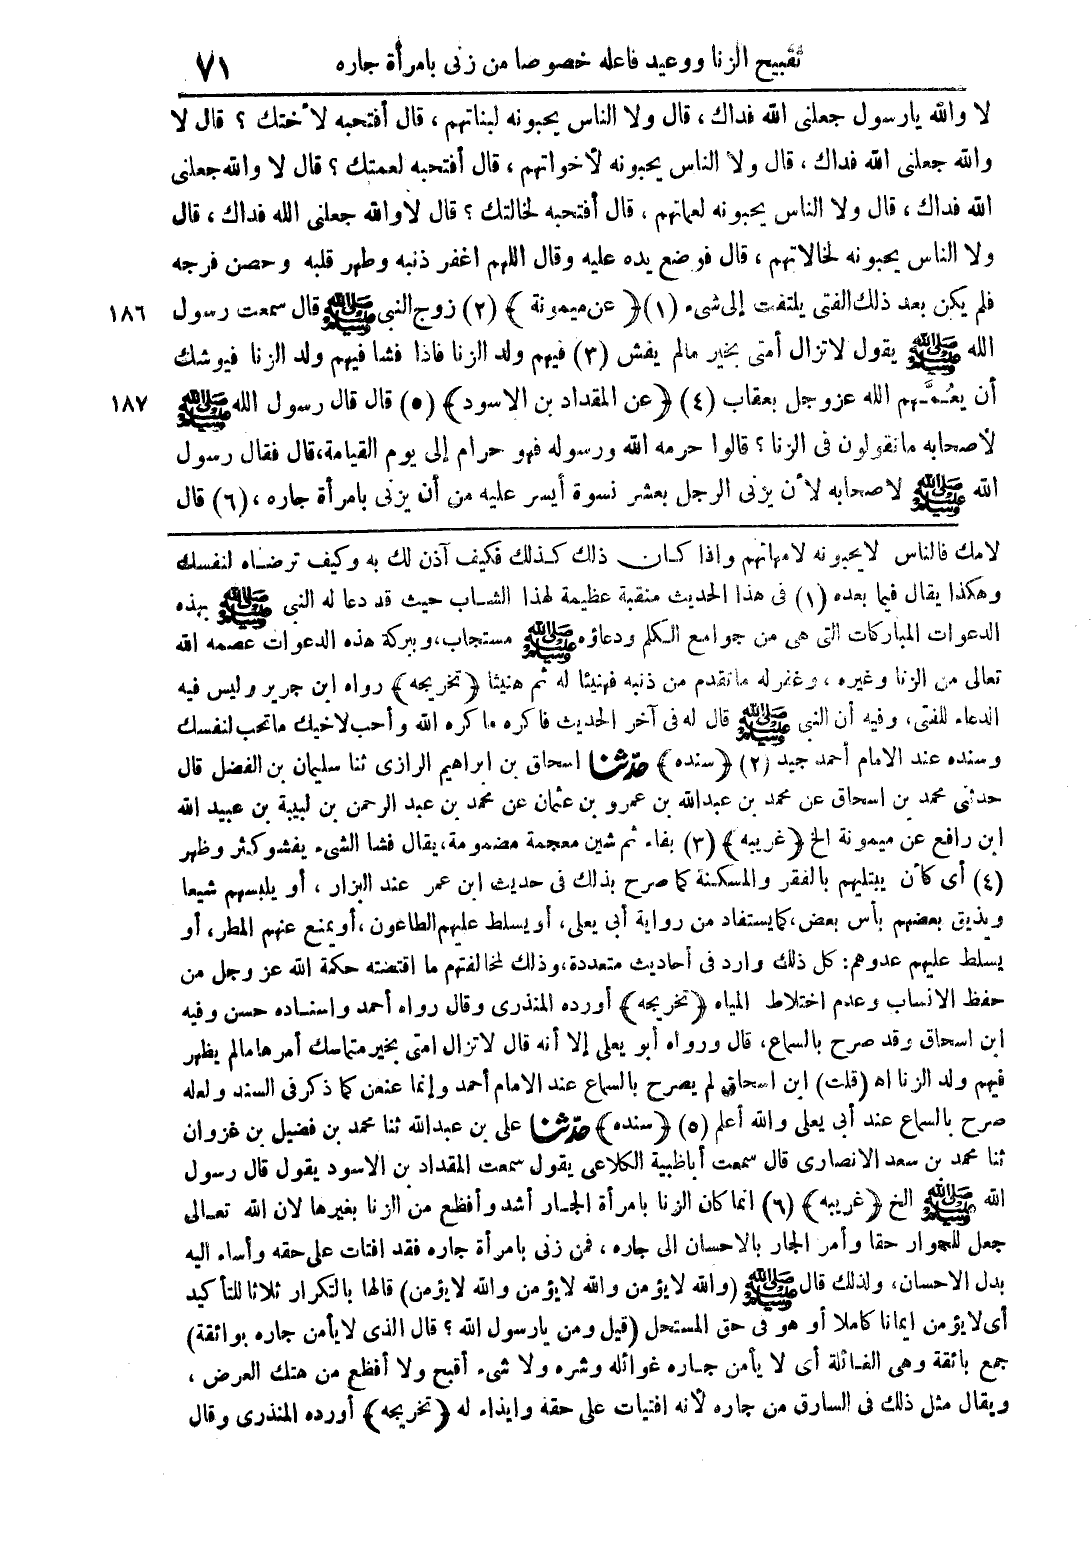 تقبيح الزنا ووعيد فاعله خصوصا من زنى بامرأة جاره ٧١
لا والله يارسول جعلنى الله فداك ، قال ولا الناس يحبونه لبناتهم ، قال أفتحبه لأختك ؟ قال لا
والله جعلنى الله فداك ، قال ولا الناس يحبونه لأخواتهم ، قال أفتحبه لعمتك ؟ قال لا والله جعلنى
الله فداك ، قال ولا الناس يحبونه لعماتهم ، قال أفتحبه لخالتك ؟ قال لاوالله جعلنى الله فداك ، قال
ولا الناس يحبونه لخالاتهم ، قال فوضع يده عليه وقال اللهم اغفر ذنبه وطهر قلبه وحصن فرجه
فلم يكن بعد ذلك الفتى يلتفت إلى شىء (١) ﴿ عن ميمونة ﴾ (٢) زوج النبى ﷺ قال سمعت رسول ١٨٦
الله ﷺ يقول لاتزال أمتى بخير مالم يفش (٣) فيهم ولد الزنا فاذا فشا فيهم ولد الزنا فيوشك
أن يعُمَّهم الله عزوجل بعقاب (٤) ﴿ عن المقداد بن الاسود ﴾ (٥) قال قال رسول الله ﷺ ١٨٧
لأصحابه ماتقولون فى الزنا ؟ قالوا حرمه الله ورسوله فهو حرام إلى يوم القيامة، قال فقال رسول
الله ﷺ لاصحابه لأن يزنى الرجل بعشر نسوة أيسر عليه من أن يزنى بامرأة جاره ، (٦) قال
لامك فالناس لايحبونه لامهاتهم واذا كان ذلك كذلك فكيف آذن لك به وكيف ترضاه لنفسك
وهكذا يقال فيما بعده (١) فى هذا الحديث منقبة عظيمة لهذا الشاب حيث قد دعا له النبى ﷺ بهذه
الدعوات المباركات التى هى من جوامع الكلم ودعاؤه ﷺ مستجاب، وببركة هذه الدعوات عصمه الله
تعالى من الزنا وغيره ، وغفر له ماتقدم من ذنبه فهنيئا له ثم هنيئا ﴿ تخريجه ﴾ رواه ابن جرير وليس فيه
الدعاء للفتى، وفيه أن النبى ﷺ قال له فى آخر الحديث فاكره ماكره الله وأحب لاخيك ماتحب لنفسك
وسنده عند الامام أحمد جيد (٢) ﴿ سنده ﴾ حدّثنا اسحاق بن ابراهيم الرازى ثنا سليمان بن الفضل قال
حدثنى محمد بن اسحاق عن محمد بن عبدالله بن عمرو بن عثمان عن محمد بن عبد الرحمن بن لبيبة بن عبيد الله
ابن رافع عن ميمونة الخ ﴿ غريبه ﴾ (٣) بفاء ثم شين معجمة مضمومة، يقال فشا الشىء يفشو كثر وظهر
(٤) أى كأن يبتليهم بالفقر والمسكنة كما صرح بذلك فى حديث ابن عمر عند البزار ، أو يلبسهم شيعا
ويذيق بعضهم بأس بعض، كما يستفاد من رواية أبى يعلى، أو يسلط عليهم الطاعون ، أو يمنع عنهم المطر، أو
يسلط عليهم عدوهم: كل ذلك وارد فى أحاديث متعددة، وذلك لمخالفتهم ما اقتضته حكمة الله عز وجل من
حفظ الانساب وعدم اختلاط المياه ﴿ تخريجه ﴾ أورده المنذرى وقال رواه أحمد واسناده حسن وفيه
ابن اسحاق وقد صرح بالسماع، قال ورواه أبو يعلى إلا أنه قال لاتزال امتى بخير متماسك أمرها مالم يظهر
فيهم ولد الزنا اه (قلت) ابن اسحاق لم يصرح بالسماع عند الامام أحمد وإنما عنعن كما ذكر فى السند ولعله
صرح بالسماع عند أبى يعلى والله أعلم (٥) ﴿ سنده ﴾ حدّثنا على بن عبدالله ثنا محمد بن فضيل بن غزوان
ثنا محمد بن سعد الانصارى قال سمعت أباظبية الكلاعى يقول سمعت المقداد بن الاسود يقول قال رسول
الله ﷺ الخ ﴿ غريبه ﴾ (٦) انما كان الزنا بامرأة الجار أشد وأفظع من الزنا بغيرها لان الله تعالى
جعل للجوار حقا وأمر الجار بالاحسان الى جاره ، فمن زنى بامرأة جاره فقد افتات على حقه وأساء اليه
بدل الاحسان، ولذلك قال ﷺ (والله لايؤمن والله لايؤمن والله لايؤمن) قالها بالتكرار ثلاثا للتأكيد
أى لايؤمن ايمانا كاملا أو هو فى حق المستحل (قيل ومن يارسول الله ؟ قال الذى لايأمن جاره بوائقة)
جمع بائقة وهى الغائلة أى لا يأمن جاره غوائله وشره ولا شىء أقبح ولا أفظع من هتك العرض ،
ويقال مثل ذلك فى السارق من جاره لأنه افتيات على حقه وايذاء له ﴿ تخريجه ﴾ أورده المنذرى وقال